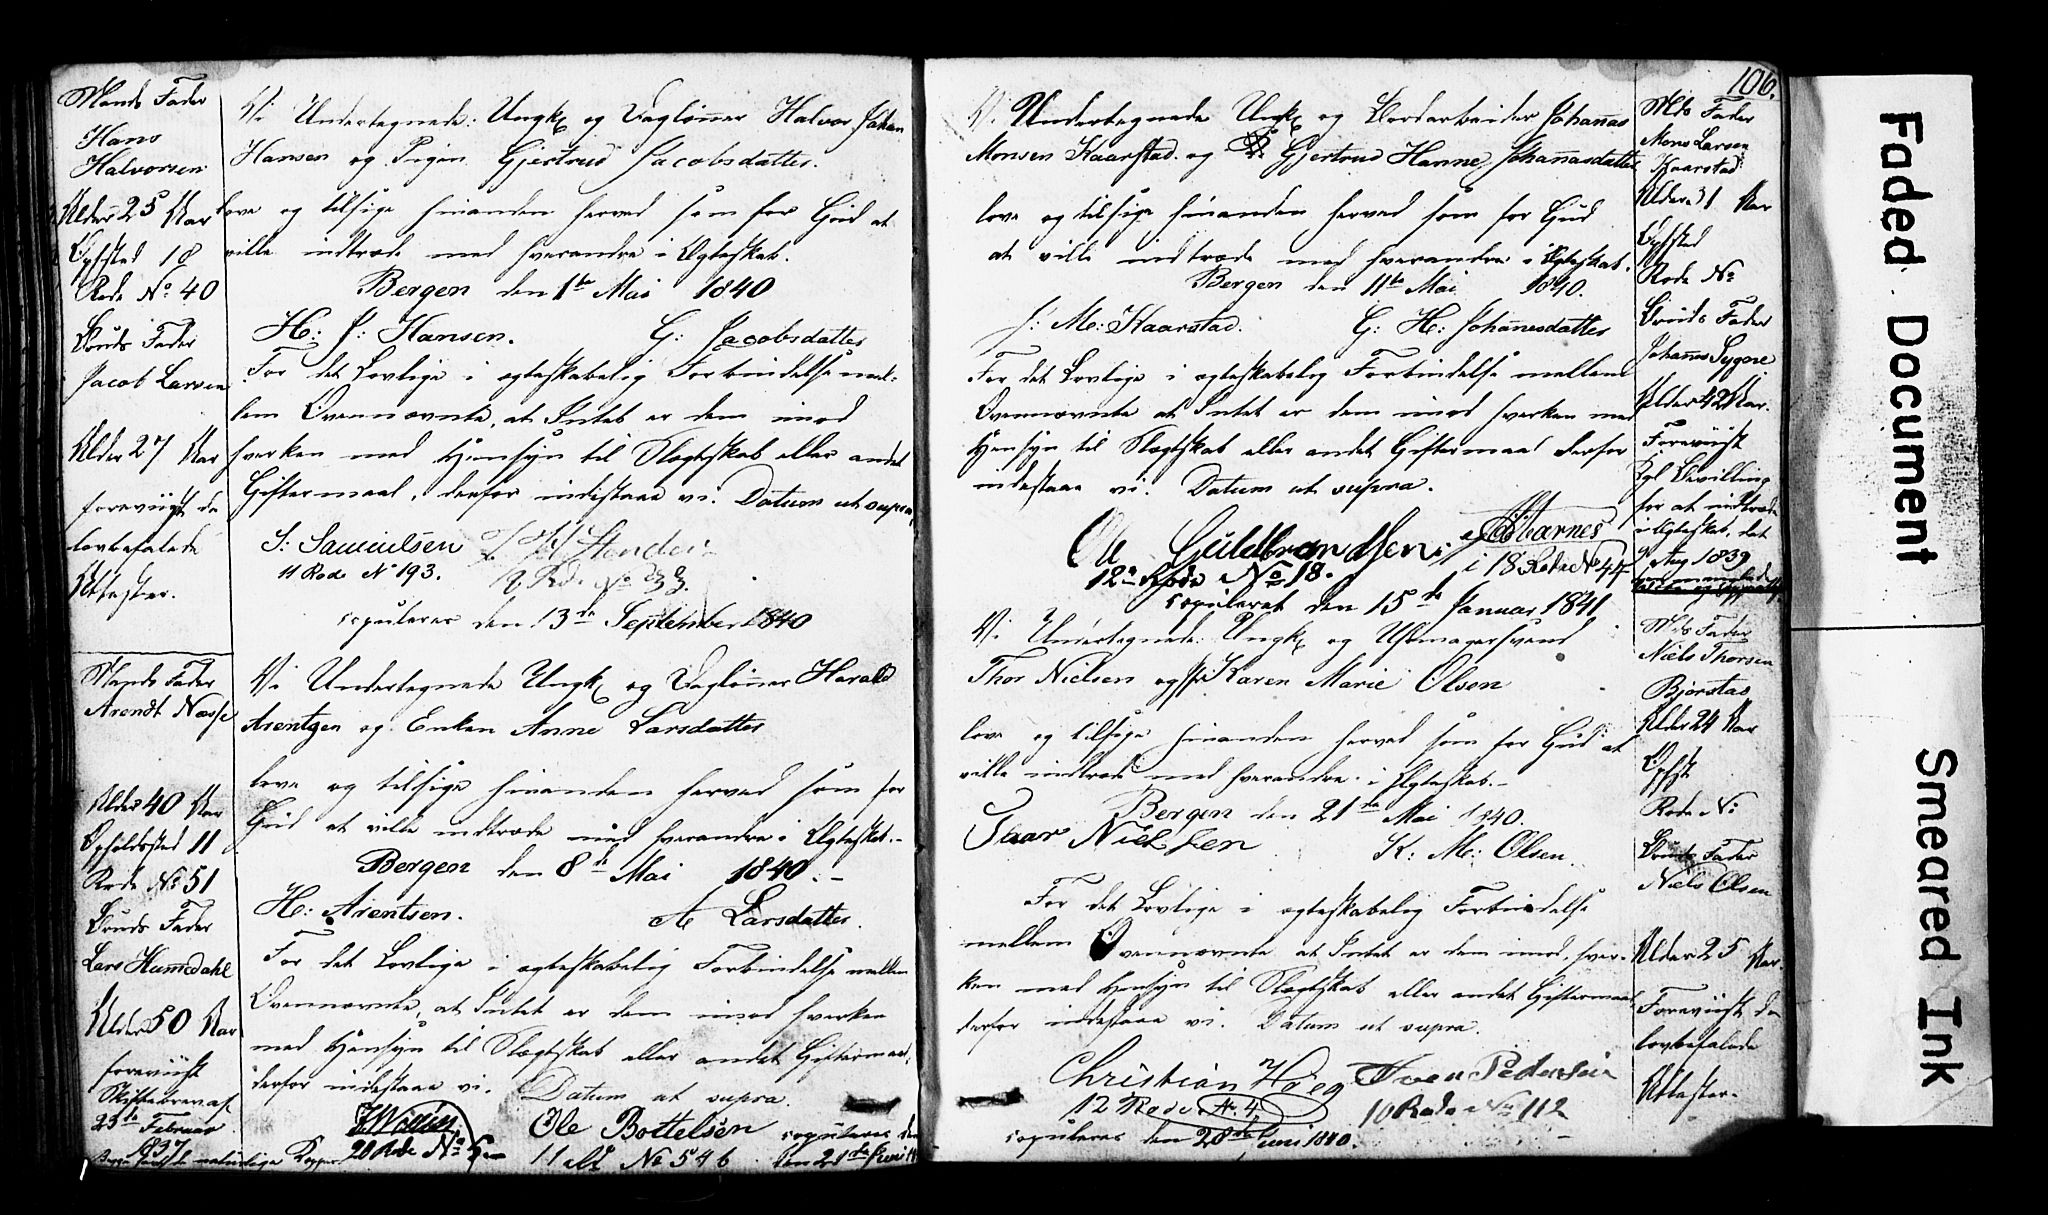 Mands Fader
Hans
Halvorsen
Alder 25 Aar
Ophsted 18
Rode No 40
Bruds Fader
Jacob Larsen
Alder 27 Aar
foreviist de
lovbefalede
Attester.
Vi Undertegnede: Ungk og Daglønner Halvor Johan
Hansen og Pigen Gjertrud Jacobsdatter.
love og tilsige hinanden herved som for Gud at
ville indtræde med hverandre i Ægteskab.
Bergen den 1te Mai 1840
H: J: Hansen. G: Jacobsdatter
For det Lovlige i ægteskabelig Forbindelse mel-
lem Ovennævnte, at Intet er dem imod
hverken med Hensyn til Slægtskab eller andet
Giftermaal, derfor indestaae vi. Datum ut supra,
S: Samuelsen
11 Rode No 193. Rd. No 33.
copuleret den 13de September 1840
Mands Fader
Arendt Nesse
Alder 40 Aar
Opholdssted 11
Rode No 51
Bruds Fader
Lars Humedahl
Alder 50 Aar
foreviist
Skiftebrev af
23de Februar
1837
Vi Undertegnede Ungk og Daglønner Harald
Arentzen og Enken Anne Larsdatter
love og tilsige hinanden herved som for
Gud at ville indtræde med hverandre i Ægteskab.-
Bergen den 8de Mai 1840.-
H: Arentsen. A Larsdatter
For det Lovlige i ægteskabelig Forbindelse mellem
Ovennævnte, at Intet er dem imod hverken
med Hensyn til Slægtskab eller andet Giftermaal,
derfor indestaae vi. Datum ut supra.
Ole Bottelsen copuleret den
20 Rode No 11 No 546 den 21de Juni
106.
Vi Undertegnede Ungk og Bordarbeider Johannes
Monsen Kaarstad og Gjertrud Hanne Johannesdatter
love og tilsige hinanden herved som for Gud
at ville indtræde med hverandre i Ægteskab.
Bergen den 11te Mai 1840.
J: M: Kaarstad. G: H: Johannesdatter
For det Lovlige i ægteskabelig Forbindelse mellem
Ovennævnte at Intet er dem imod hverken med
Hensyn til Slægtskab eller andet Giftermaal derfor
indestaae vi. Datum ut supra.
Ole Guldbrandsen
12te Rode No 18. i 18 Rode No 44
copuleret den 15de Januar 1841
Mds Fader
Mons Larsen
Kaarstad
Alder 31 Aar
Ophsted
Rode No
Bruds Fader
Johannes
Alder 42 Aar.
Foreviist
Kgl Bevilling
for at indtræde
i Ægteskab, dat
Aug 1839
Vi Undertegnede: Ungk og Uhrmagersvend
Thor Nielsen og Karen Marie Olsen
love og tilsige hinanden herved som for Gud at
ville indtræde med hverandre i Ægteskab.-
Bergen den 21de Mai 1840.
Nielsen K: M: Olsen.
For det Lovlige i ægteskabelig Forbindelse
mellem Ovennævnte at Intet er dem imod, hver-
ken med Hensyn til Slægtskab eller andet Giftermaal
derfor indestaae vi. Datum ut supra.
Christian Pedersen
12 Rode No. 4. 10 Rode No 112
copuleret den 28de Juni 1840.
Mds Fader
Niels Thorsen
Bjørstad
Alder 24 Aar
Ophst
Rode No
Bruds Fader
Niels Olsen
Alder 25 Aar.
Foreviist de
lovbefalede
Attester.
Faded Document
Smeared Ink